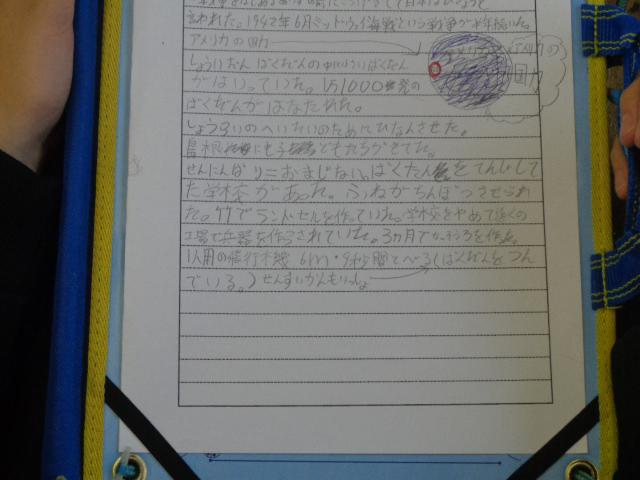 言われた。1942年6月ミッドウェイ海戦という戦争が半年続いた。
アメリカの国力
アメリカの
国力
しょういだん ばくだんの中に小さいばくだん
がはいっていた。1万1000発の
ばくだんがはなたれた。
しょうらいのへいたいのためにひなんさせた。
島根にも子どもたちがきてた。
せんにんばり=おまじない。ばくだんをてんじして
た学校があった。ふねがちんぼつさせられ
た。竹でランドセルを作っていた。学校をやめて近くの
工場で兵器を作らされていた。3ヵ月で
1人用の飛行機 6m・9秒間とべる(ばくだんをつん
でいる。)せんすいかんもいっしょ